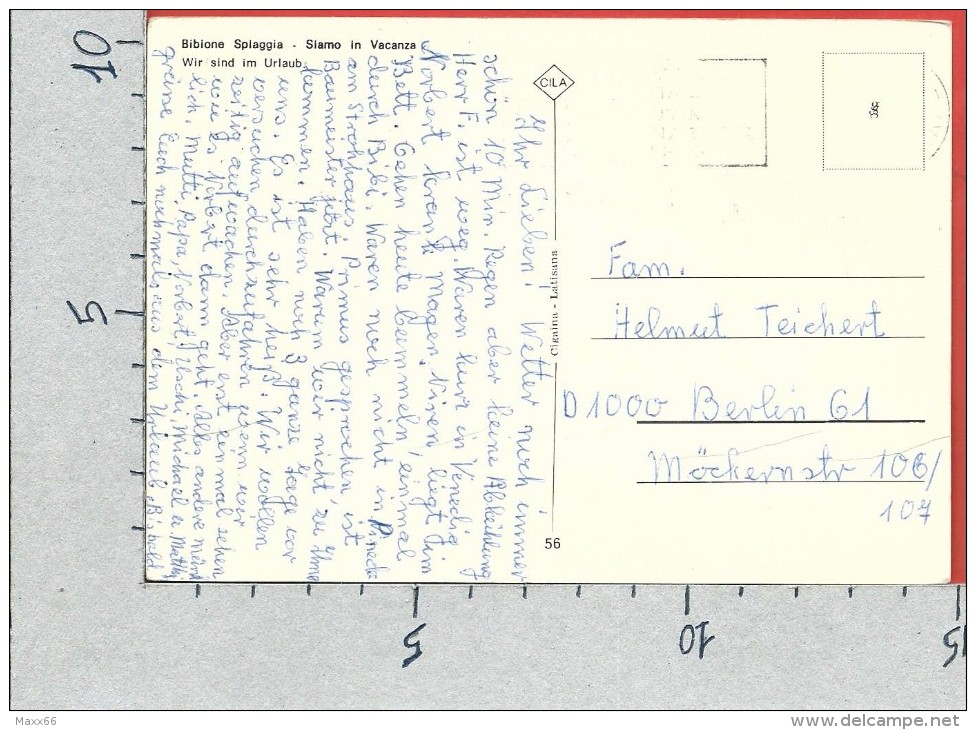 Bibione Spiaggia - Siamo in Vacanza
Wir sind im Urlaub
CILA
Cigaina - Latisana
56
Ihr Lieben! Wetter noch immer
schön 10 Min. Regen aber keine Abkühlung
Herr F. ist weg. Waren kurz in Venedig
Norbert krank Magen, Nieren, liegt im
Bett. Gehen heute bummeln, einmal
durch Bibi. Waren noch nicht in Pineda
am Strohhaus. Primus gesprochen ist
Baumeister jetzt. Warum wir nicht zu ihm
kommen. Haben noch 3 ganze Tage vor
uns. Es ist sehr heiß. Wir wollen
versuchen durchzufahren wenn wir
zeitig aufwachen. Aber erst einmal sehen
wie es Norbert dann geht. Alles andere münd
lich. Mutti, Papa, Norbert, Uschi, Michael u.
Euch nochmals aus dem Urlaub. Bis bald
Fam.
Helmut Teichert
D1000 Berlin 61
Möckernstr 106/
107
10
5
5
10
15
Maxx66
www.delcampe.net